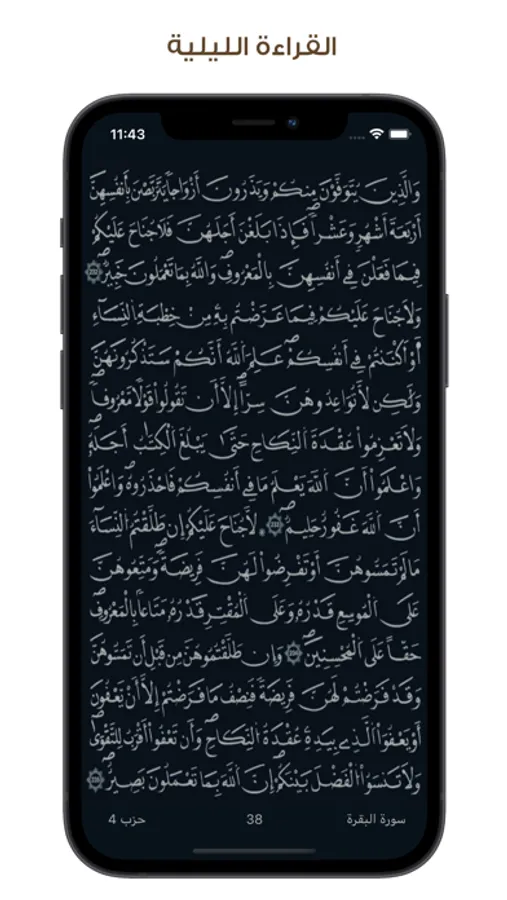 القراءة الليلية
11:43
وَالَّذِينَ يُتَوَفَّوْنَ مِنكُمْ وَيَذَرُونَ أَزْوَاجاً يَتَرَبَّصْنَ بِأَنفُسِهِنَّ
أَرْبَعَةَ أَشْهُرٍ وَعَشْراً فَإِذَا بَلَغْنَ أَجَلَهُنَّ فَلَا جُنَاحَ عَلَيْكُمْ
فِيمَا فَعَلْنَ فِي أَنفُسِهِنَّ بِالْمَعْرُوفِ وَاللَّهُ بِمَا تَعْمَلُونَ خَبِيرٌ
وَلَا جُنَاحَ عَلَيْكُمْ فِيمَا عَرَّضْتُم بِهِ مِنْ خِطْبَةِ النِّسَاءِ
أَوْ أَكْنَنتُمْ فِي أَنفُسِكُمْ عَلِمَ اللَّهُ أَنَّكُمْ سَتَذْكُرُونَهُنَّ
وَلَٰكِن لَّا تُوَاعِدُوهُنَّ سِرّاً إِلَّا أَن تَقُولُوا قَوْلاً مَّعْرُوفاً
وَلَا تَعْزِمُوا عُقْدَةَ النِّكَاحِ حَتَّىٰ يَبْلُغَ الْكِتَٰبُ أَجَلَهُ
وَاعْلَمُوا أَنَّ اللَّهَ يَعْلَمُ مَا فِي أَنفُسِكُمْ فَاحْذَرُوهُ وَاعْلَمُوا
أَنَّ اللَّهَ غَفُورٌ حَلِيمٌ لَّا جُنَاحَ عَلَيْكُمْ إِن طَلَّقْتُمُ النِّسَاءَ
مَا لَمْ تَمَسُّوهُنَّ أَوْ تَفْرِضُوا لَهُنَّ فَرِيضَةً وَمَتِّعُوهُنَّ
عَلَى الْمُوسِعِ قَدْرُهُ وَعَلَى الْمُقْتِرِ قَدْرُهُ مَتَاعاً بِالْمَعْرُوفِ
حَقّاً عَلَى الْمُحْسِنِينَ وَإِن طَلَّقْتُمُوهُنَّ مِن قَبْلِ أَن تَمَسُّوهُنَّ
وَقَدْ فَرَضْتُمْ لَهُنَّ فَرِيضَةً فَنِصْفُ مَا فَرَضْتُمْ إِلَّا أَنْ يَعْفُونَ
أَوْ يَعْفُوَا الَّذِي بِيَدِهِ عُقْدَةُ النِّكَاحِ وَأَن تَعْفُوا أَقْرَبُ لِلتَّقْوَىٰ
وَلَا تَنسَوُا الْفَضْلَ بَيْنَكُمْ إِنَّ اللَّهَ بِمَا تَعْمَلُونَ بَصِيرٌ
سورة البقرة 38 حزب 4